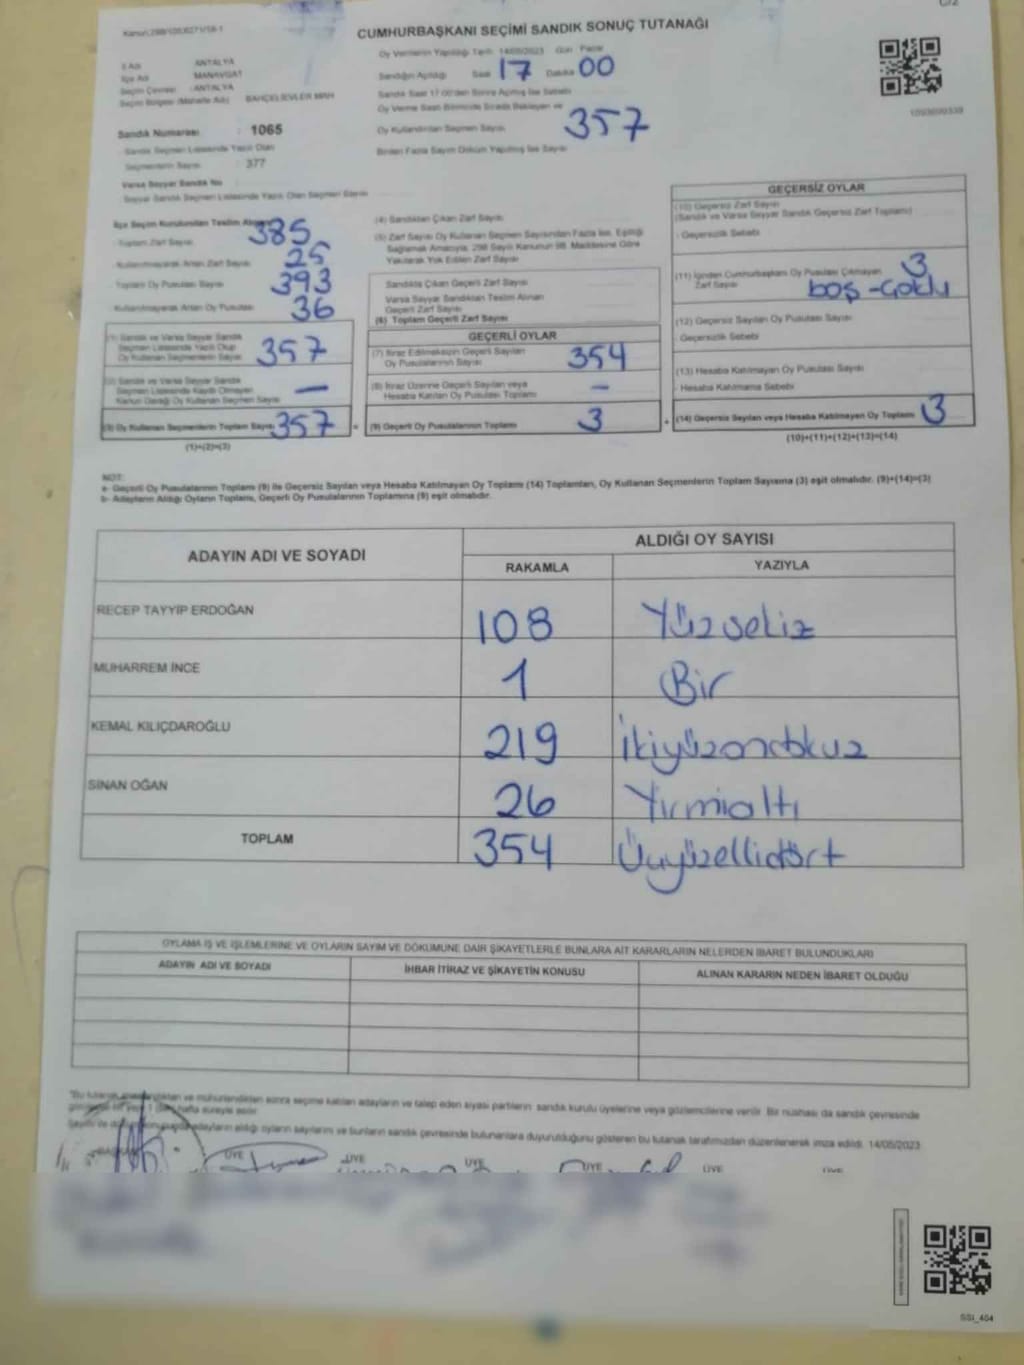 CUMHURBAŞKANI SEÇİMİ SANDIK SONUÇ TUTANAĞI
Oy Vermenin Yapıldığı Tarih: 14/05/2023 Gün Pazar
İl Adı ANTALYA
İlçe Adı MANAVGAT
Seçim Çevresi : ANTALYA
Seçim Bölgesi (Mahalle Adı) BAHÇELİEVLER MAH
Sandık Numarası : 1065
Sandık Seçmen Listesinde Yazılı Olan
Seçmenlerin Sayısı : 377
Varsa Seyyar Sandık No
Seyyar Sandık Seçmen Listesinde Yazılı Olan Seçmen Sayısı
Sandığın Açıldığı Saat 17 Dakika 00
Sandık Saat 17:00'den Sonra Açılmış İse Sebebi
Oy Verme Saati Bitiminde Sırada Bekleyen ve
Oy Kullandırılan Seçmen Sayısı 357
Birden Fazla Sayım Döküm Yapılmış İse Sayısı
1093690339
İlçe Seçim Kurulundan Teslim Alınan
Toplam Zarf Sayısı 385
Kullanılmayarak Artan Zarf Sayısı 25
Toplam Oy Pusulası Sayısı 393
Kullanılmayarak Artan Oy Pusulası 36
(1) Sandık ve Varsa Seyyar Sandık
Seçmen Listesinde Yazılı Olup
Oy Kullanan Seçmenlerin Sayısı 357
(2) Sandık ve Varsa Seyyar Sandık
Seçmen Listesinde Kayıtlı Olmayan
Kanun Gereği Oy Kullanan Seçmen Sayısı —
(3) Oy Kullanan Seçmenlerin Toplam Sayısı 357
(1)+(2)=(3)
(4) Sandıktan Çıkan Zarf Sayısı
(5) Zarf Sayısı Oy Kullanan Seçmen Sayısından Fazla İse, Eşitliği
Sağlamak Amacıyla, 298 Sayılı Kanunun 98. Maddesine Göre
Yakılarak Yok Edilen Zarf Sayısı
Sandıkta Çıkan Geçerli Zarf Sayısı
Varsa Seyyar Sandıktan Teslim Alınan
Geçerli Zarf Sayısı
(6) Toplam Geçerli Zarf Sayısı
GEÇERLİ OYLAR
(7) İtiraz Edilmeksizin Geçerli Sayılan
Oy Pusulalarının Sayısı 354
(8) İtiraz Üzerine Geçerli Sayılan veya
Hesaba Katılan Oy Pusulası Toplamı —
= (9) Geçerli Oy Pusulalarının Toplamı 3
GEÇERSİZ OYLAR
(10) Geçersiz Zarf Sayısı
(Sandık ve Varsa Seyyar Sandık Geçersiz Zarf Toplamı)
- Geçersizlik Sebebi
(11) İçinden Cumhurbaşkanı Oy Pusulası Çıkmayan 3
Zarf Sayısı boş-çoklu
(12) Geçersiz Sayılan Oy Pusulası Sayısı
- Geçersizlik Sebebi
(13) Hesaba Katılmayan Oy Pusulası Sayısı
- Hesaba Katılmama Sebebi
+ (14) Geçersiz Sayılan veya Hesaba Katılmayan Oy Toplamı 3
(10)+(11)+(12)+(13)=(14)
NOT:
a- Geçerli Oy Pusulalarının Toplamı (9) ile Geçersiz Sayılan veya Hesaba Katılmayan Oy Toplamı (14) Toplamları, Oy Kullanan Seçmenlerin Toplam Sayısına (3) eşit olmalıdır. (9)+(14)=(3)
b- Adayların Aldığı Oyların Toplamı, Geçerli Oy Pusulalarının Toplamına (9) eşit olmalıdır.
ADAYIN ADI VE SOYADI
ALDIĞI OY SAYISI
RAKAMLA YAZIYLA
RECEP TAYYİP ERDOĞAN 108 Yüzsekiz
MUHARREM İNCE 1 Bir
KEMAL KILIÇDAROĞLU 219 İkiyüzondokuz
SİNAN OĞAN 26 Yirmialtı
TOPLAM 354 Üçyüzellidört
OYLAMA İŞ VE İŞLEMLERİNE VE OYLARIN SAYIM VE DÖKÜMÜNE DAİR ŞİKAYETLERLE BUNLARA AİT KARARLARIN NELERDEN İBARET BULUNDUKLARI
ADAYIN ADI VE SOYADI İHBAR İTİRAZ VE ŞİKAYETİN KONUSU ALINAN KARARIN NEDEN İBARET OLDUĞU
ve mühürlendikten sonra seçime katılan adayların ve talep eden siyasi partilerin sandık kurulu üyelerine veya gözlemcilerine verilir. Bir nüshası da sandık çevresinde
hafta süreyle asılır.
adayların aldığı oyların sayılarını ve bunların sandık çevresinde bulunanlara duyurulduğunu gösteren bu tutanak tarafımızdan düzenlenerek imza edildi. 14/05/2023
ÜYE ÜYE ÜYE ÜYE ÜYE ÜYE
SSI_404